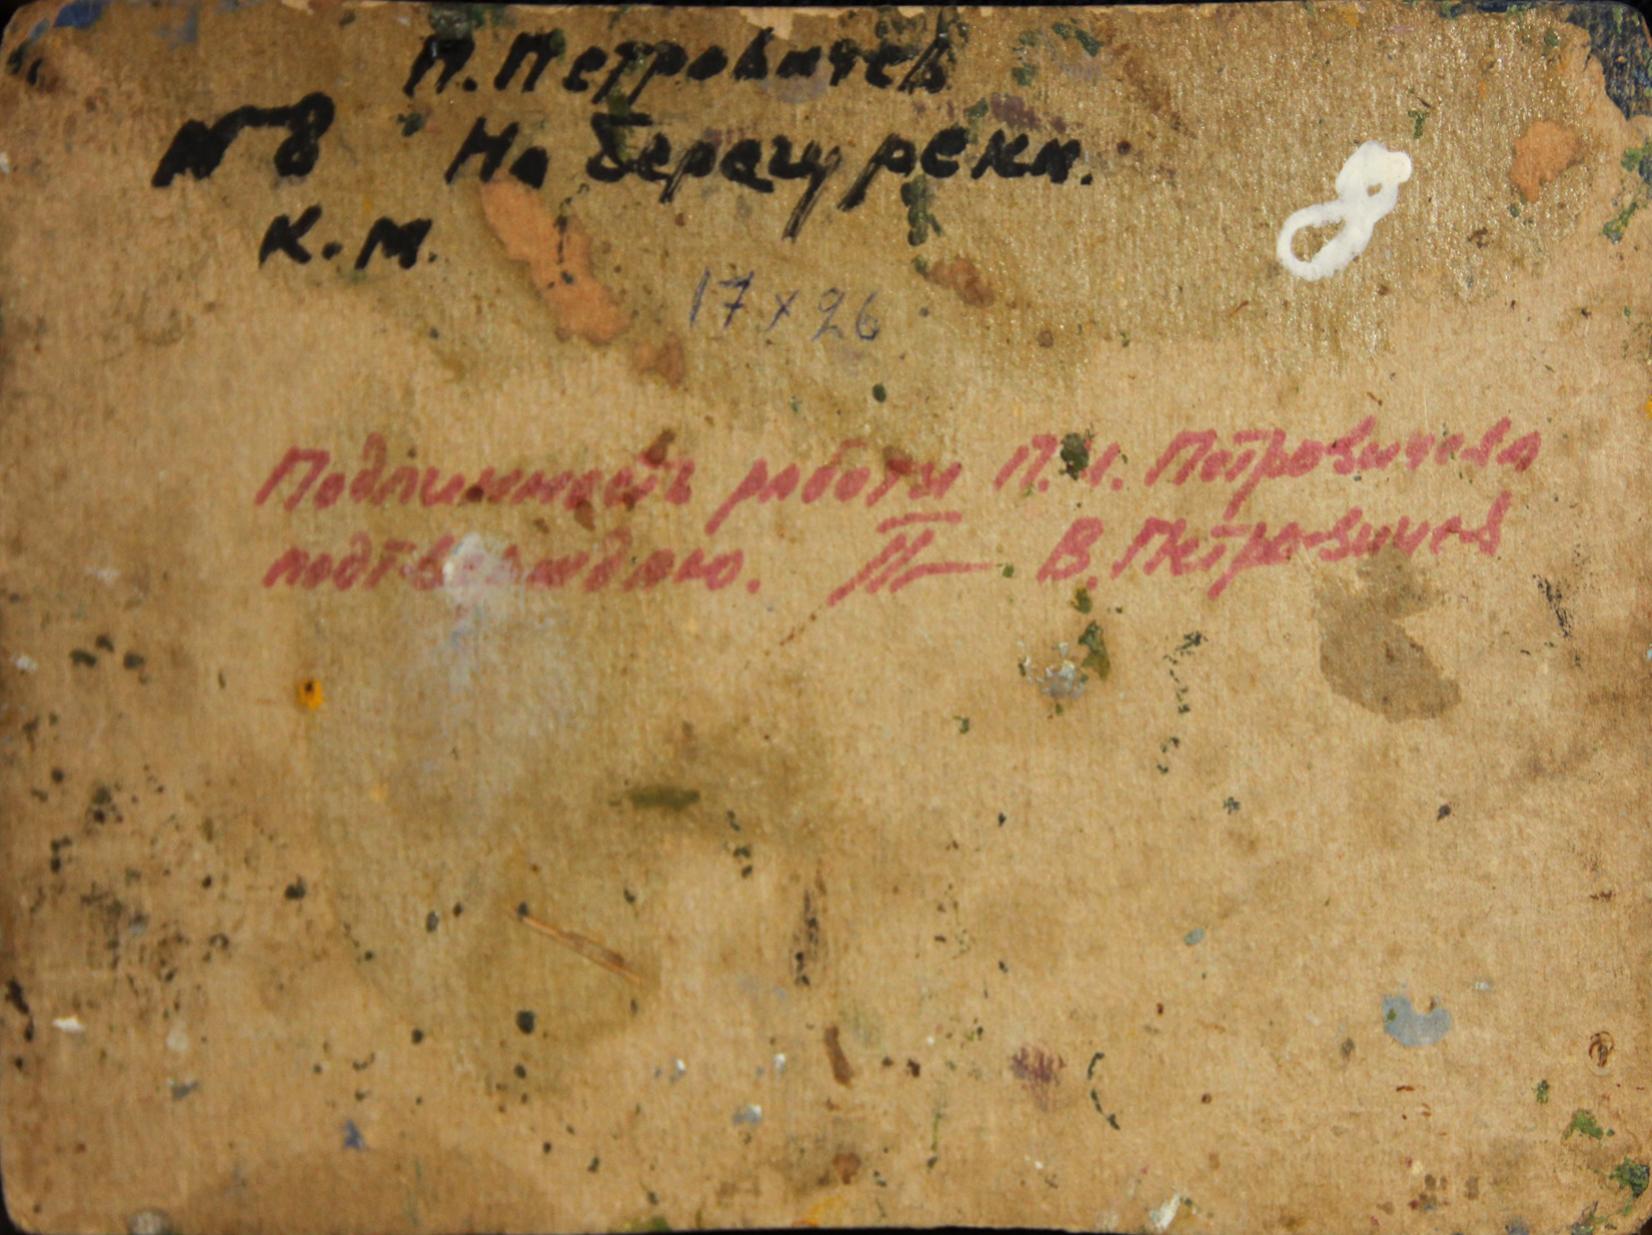 П. Петровичев
№8 На берегу реки.
К. М.
8
17 x 26
Подлинность работы П. И. Петровичева
подтверждаю. В. Петровичев